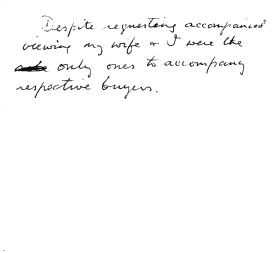 Despite requesting accompanied
viewing my wife & I were the
only ones to accompany
respective buyers.